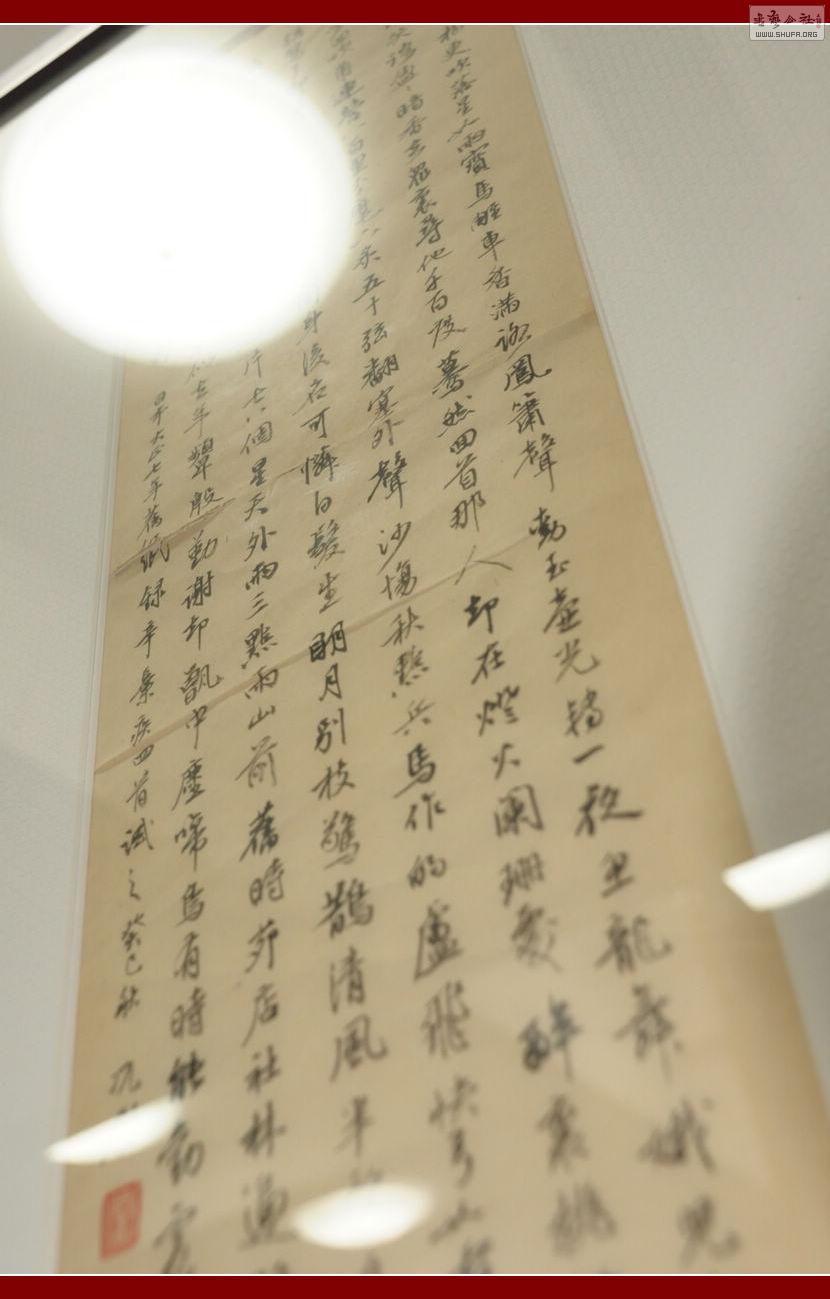 更吹落星如雨寶馬雕車香滿路鳳簫聲動玉壺光轉一夜魚龍舞蛾兒
暗香去眾裏尋他千百度驀然回首那人却在燈火闌珊處醉裏挑
角連營八百里分麾下炙五十弦翻塞外聲沙場秋點兵馬作的盧飛快弓如
身後名可憐白髮生明月別枝驚鵲清風半
片七八個星天外兩三點雨山前舊時茅店社林邊
年顰殷勤謝却甑中塵啼鳥有時能勸
日本大正七年舊紙錄辛棄疾四首試之癸巳秋
WWW.SHUFA.ORG